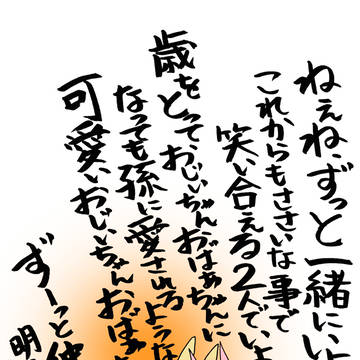 ねぇね、ずっと一緒にい
これからもささいな事で
笑い合える2人でいよ
歳をとって、おじいちゃんおばぁちゃんに
なっても孫に愛されるような
可愛いおじぃちゃんおばぁ
ずーっと
明